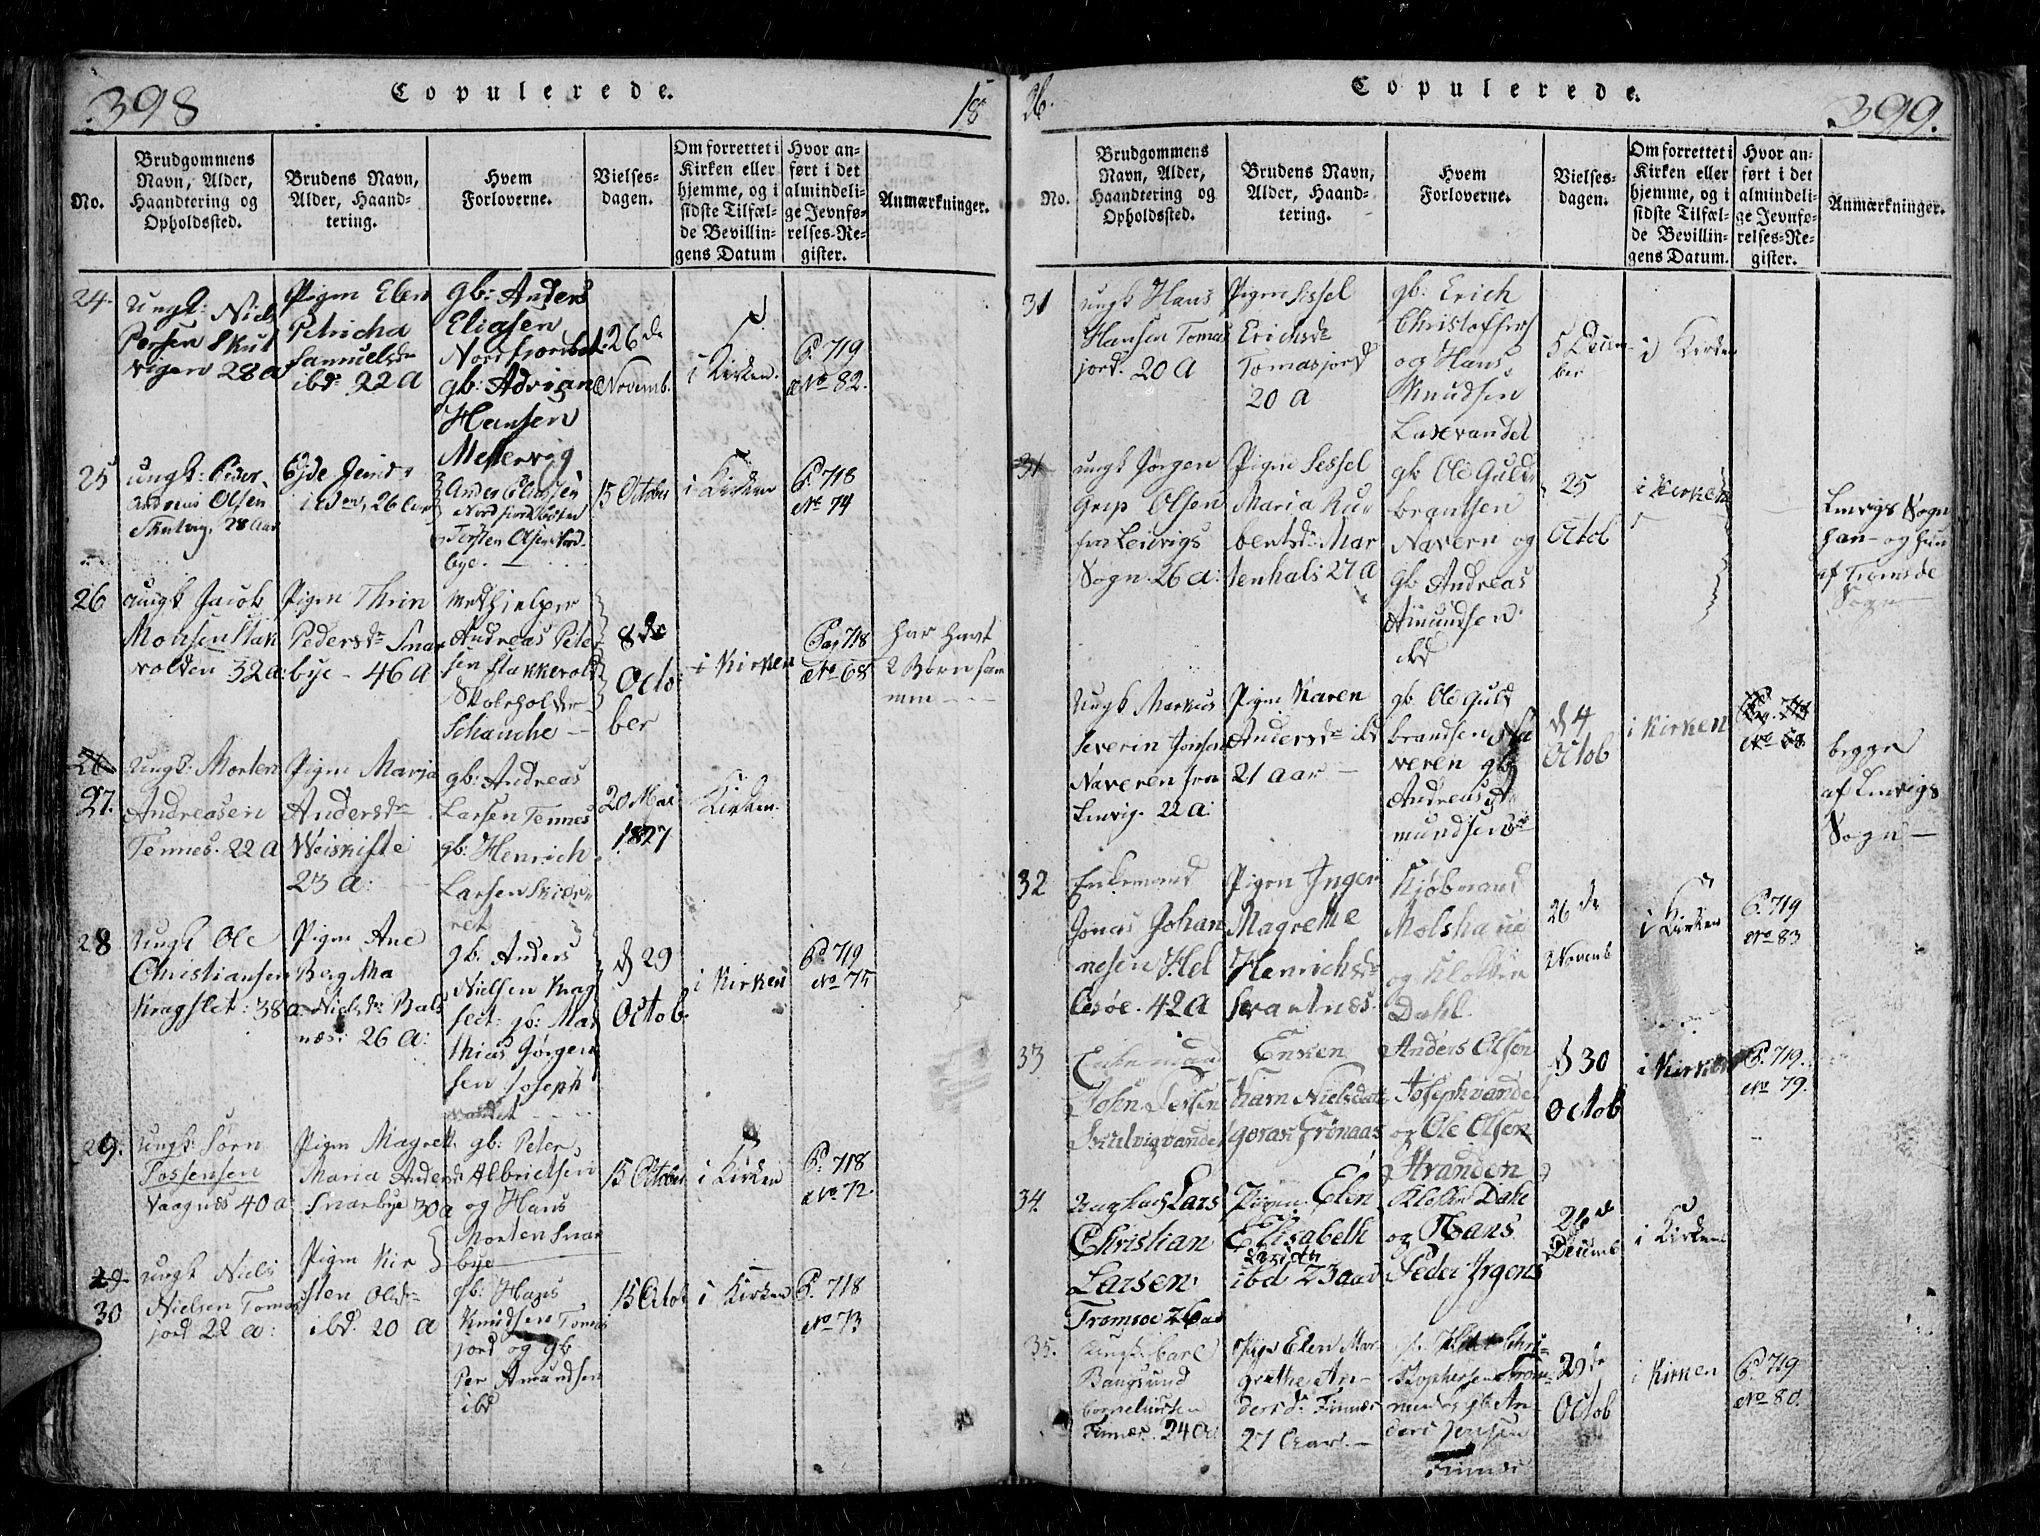 398
Copulerede.
18
No.
Brudgommens
Navn, Alder,
Haandtering og
Opholdssted.
Brudens Navn,
Alder, Haand-
tering.
Hvem
Forloverne.
Vielses-
dagen.
Om forrettet i
Kirken eller
hjemme, og i
sidste Tilfæl-
de Bevillin-
gens Datum
Hvor an-
ført i det
almindeli-
ge Jevnfø-
relses-Re-
gister.
Anmærkninger.
24.
Ungk: Niels
Persen Skul
vigen 28 a
Pigen Elen
Petricha
Samuelsdr
ibd: 22 A
gb: Anders
Eliasen
Nordfjordbot:
gb: Adrian
Hansen
Mestervig
26de
Novemb.
i Kirken.
P. 719
No 82.
25
Ungk: Peder
Andreas Olsen
Skulvig, 28 Aar
26 Aar
Anders Eliassen
Nordfjordbotten
Torsten Olsen
bye.
15 October
i Kirken
P. 718
No 74
26
Ungk Jacob
Monsen Stak
volden 32 a:
Pigen Thrin
Pedersdr Snar
bye - 46 A
Medhjelper
Andreas Peter
sen Stakkevold
Skoleholder
Schanche -
8de
Octo
ber
i Kirken
Pag 718
No 68
har havt
2 Børn sam
men - -
27.
Ungk: Morten
Andreasen
Tennes. 22 A
Pigen Maria
Andersdr
Weiskifte
23 A:
gb: Andreas
Larsen Tennes
gb: Henrich
Larsen Skiær
ret
20 Mai
1827
Kirken.
28
Ungk Ole
Christiansen
Kragslet: 38 a
Pigen Ane
Berg Ma
Nielsdr Bals
næs: 26 A:
gb: Anders
Nielsen Krag
slet: gb: Mat
thias Jørgen
sen Joseph
vandet
d 29
Octob
i Kirken
P. 719
No 75
29.
Ungk: Sørn
Possensen
Vaagnæs 40 a
Pigen Magret
Maria Andersd
Snarbye 30 a
gb: Peter
Albrictsen
og Hans
Morten Snar
bye
15 October
i Kirken
P. 718
No 72.
29
30
Ungk Niels
Nielsen Tomas
jord 22 a:
Pigen Kir
sten Olsdr
ibd. 20 A
gb: Hans
Knudsen Tomas
jord og gb
Per Amundsen
ibd
15 Octob
i Kirken
P. 718
No 73
26.
Copulerede.
399.
No.
Brudgommens
Navn, Alder,
Haandtering og
Opholdssted.
Brudens Navn,
Alder, Haand-
tering.
Hvem
Forloverne.
Vielses-
dagen.
Om forrettet i
Kirken eller
hjemme, og i
sidste Tilfæl-
de Bevillin-
gens Datum.
Hvor an-
ført i det
almindeli-
ge Jevnfø-
relses-Re-
gister.
Anmærkninger.
31
Ungk Hans
Hansen Tomas
jord. 20 A
Pigen Sissel
Erichsdr
Tomasjord
20 A
gb: Erich
Christoffers
og Hans
Knudsen
Laxevandet
5 Decem
ber
i Kirken
31
Ungk Jørgen
Grip Olsen
fra Lenvigs
Sogn. 26 a:
Pigen Sessel
Maria Ru
bertsdr Mar
tenhals 27 A
gb. Ole Guld
brantsen
Navern og
gb Andreas
Amundsen
ibd
25
Octob
i Kirken
Lenvigs Sogn
han - og hun
af Tromsøe
Sogn
Ungk Markus
Severin Jonsen
Naveren fra
Lenvig. 22 A:
Pigen Karen
Andersdr ibd
21 aar -
gb. Ole Guld
brandsen Na
veren gb
Andreas A
mundsen
d 4
Octob
i Kirken
begge
af Lenvigs
Sogn -
32
Enkemand
Jonas Johan
nesen Hel
lesøe. 42 A
Pigen Inger
Magrethe
Henrichsdr
Svantnæs.
Kjøbmand
Molshaue
og Klokker
Dahl.
26de
Novemb
i Kirken
P. 719
No 83
33
Enkemand
John Persen
Skulvigvandet
Enken
Karn Nielsdatt
Gøran Grønaas
Anders Olsen
Josephvandet
og Ole Olsen
Stranden
d 30
Octob
i Kirken
P. 719.
No 79.
34.
Ungkarl Lars
Christian
Larsen
Tromsøe 26 aar
Pigen Elen
Elisabeth
Larsdtr
ibd 23 aar
Klokker Dahl
og Hans
Peder Irgens
26de
Decemb
i Kirken
35.
Ungk: Carl
Bangsund
Cornelius̈sen
Finnæs. 24 A:
Pige Elen Mar
grethe An-
dersdr Finnæs
27 Aar. -
Chri-
stophersen
gb: An
ders Jensen
Finnæs
29de
Octob
i Kirken
P. 719
No 80.